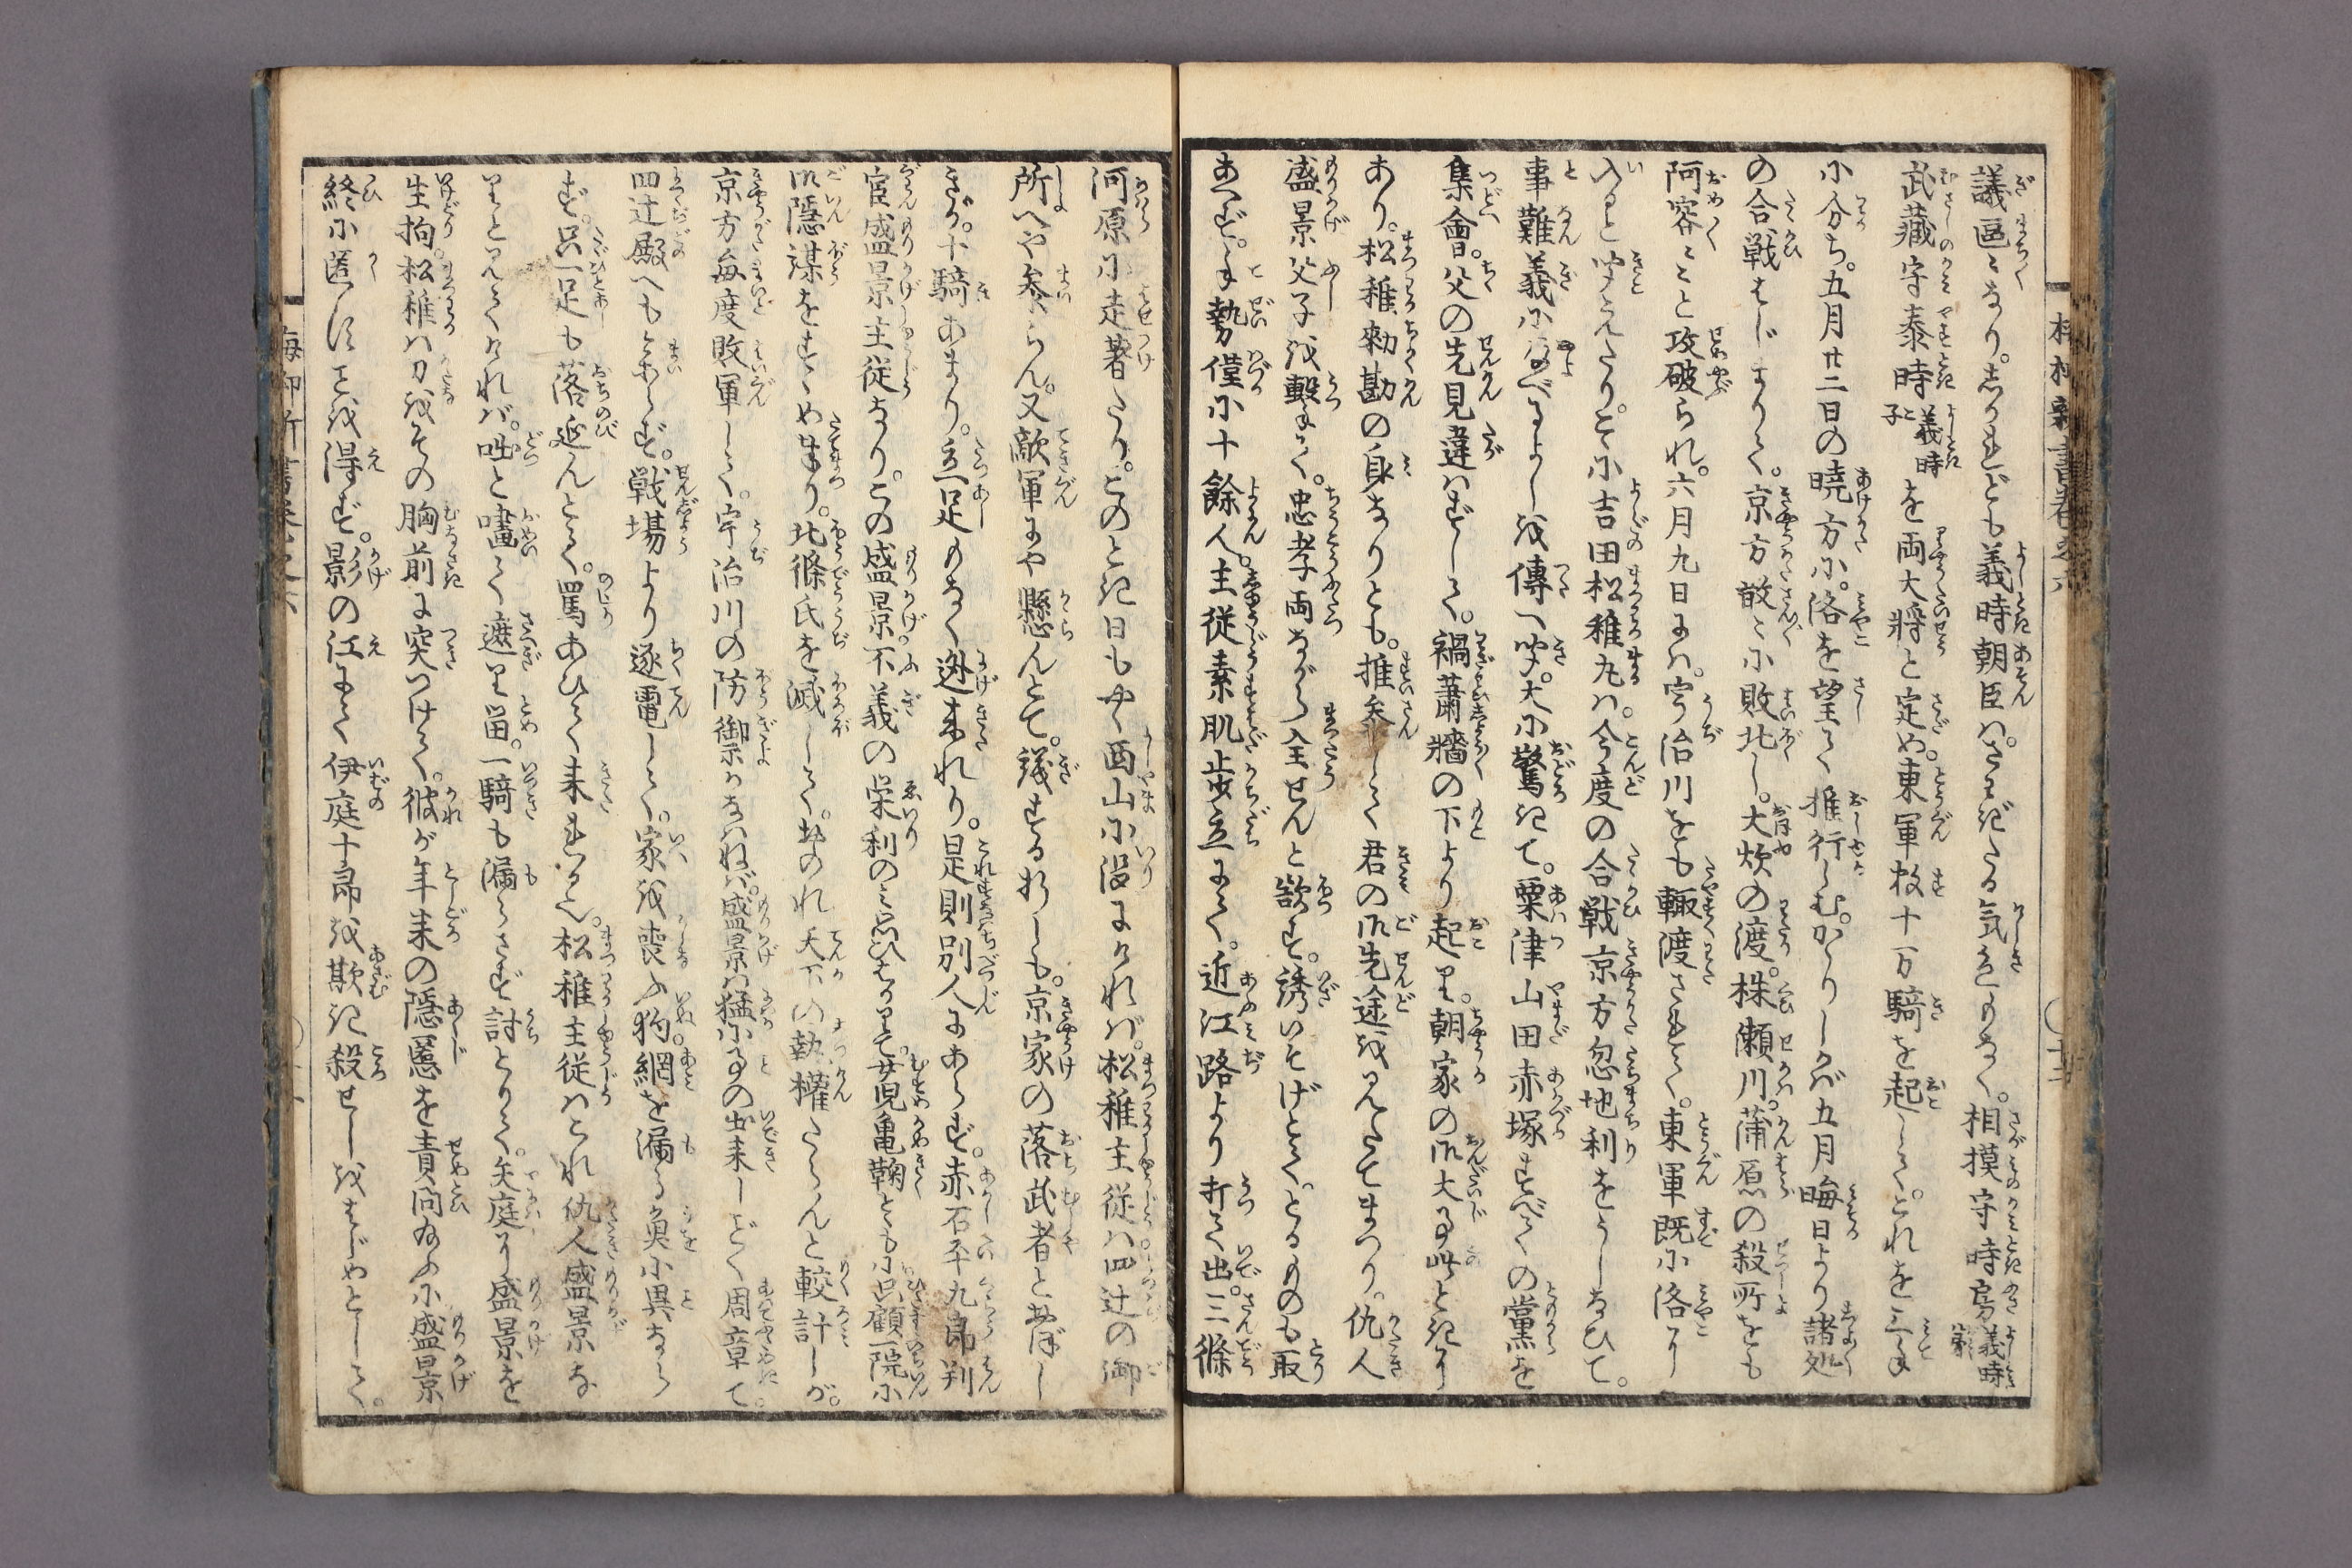 議區〻なり。しかれども義時朝臣はさわぎたる気色もなく。相摸守時房義時弟
武藏守泰時義時子を両大將と定め。東軍数十万騎を起して。これを三手
に分ち。五月廿二日の曉方に。洛を望て推行しむ。かゝりしかば五月晦日より諸処
の合戦はじまりて。京方散〻に敗北し。大炊の渡。株瀬川。蒲原の殺所をも
阿容〻〻と攻破られ。六月九日には。宇治川をも輙渡されて。東軍既に洛に
入ると聞えたり。こゝに吉田松稚丸は。今度の合戦京方忽地利をうしなひて。
事難義に及べるよしを傳へ聞。大に驚きて。粟津山田赤塚すべての黨を
集會。父の先見違はずして。禍蕭牆の下より起り。朝家の御大事此ときに
あり。松稚勅勘の身なりとも。推参して君の御先途を見たてまつり。仇人
盛景父子を撃て。忠孝両ながら全せんと欲す。誘いそげとて。とるものも取
あへず。手勢僅に十餘人。主従素肌歩立にて。近江路より打て出。三條
河原に走著たり。このとき日もやゝ西山に没にければ。松稚主従は四辻の御
所へや参らん。又敵軍にや懸んとて。議する折しも。京家の落武者とおぼし
き。十騎あまり。立足もなく迯来れり。是則別人にあらず。赤石平九郎判
官盛景主従なり。この盛景不義の栄利のみ思ひはかりて。女児亀鞠とともに只顧一院に
御隠謀をすゝめまゐり。北條氏を滅して。おのれ天下の執權たらんと較計しが。
京方毎度敗軍して。宇治川の防禦かなはねば。盛景は猛に事の出来しごとく周章て。
四辻殿へもまゐらず。戦場より逐電して。家を喪ふ狗。網を漏る魚に異なら
ず。只一足も落延んとて。罵あひて来れるを。松稚主従はこれ仇人盛景な
りと見てければ。咄と嘯て遮り留。一騎も漏らさず討とりて。矢庭に盛景を
生拘。松稚は刀をその胸前に突つけて。彼が年来の隠慝を責問ふに盛景
終に匿すことを得ず。影の江にて伊庭十郎を欺き殺せしをはじめとして。